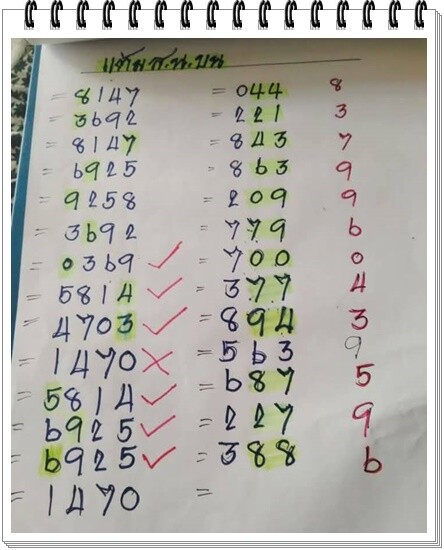 แต้ม ส.น.บน
= 8147 = 044 8
= 3692 = 221 3
= 8147 = 843 7
= 6925 = 863 9
= 9258 = 209 9
= 3692 = 779 6
= 0369 ✓ = 700 0
= 5814 ✓ = 377 4
= 4703 ✓ = 894 3
= 1470 ✗ = 563 9
= 5814 ✓ = 687 5
= 6925 ✓ = 227 9
= 6925 ✓ = 388 6
= 1470 =